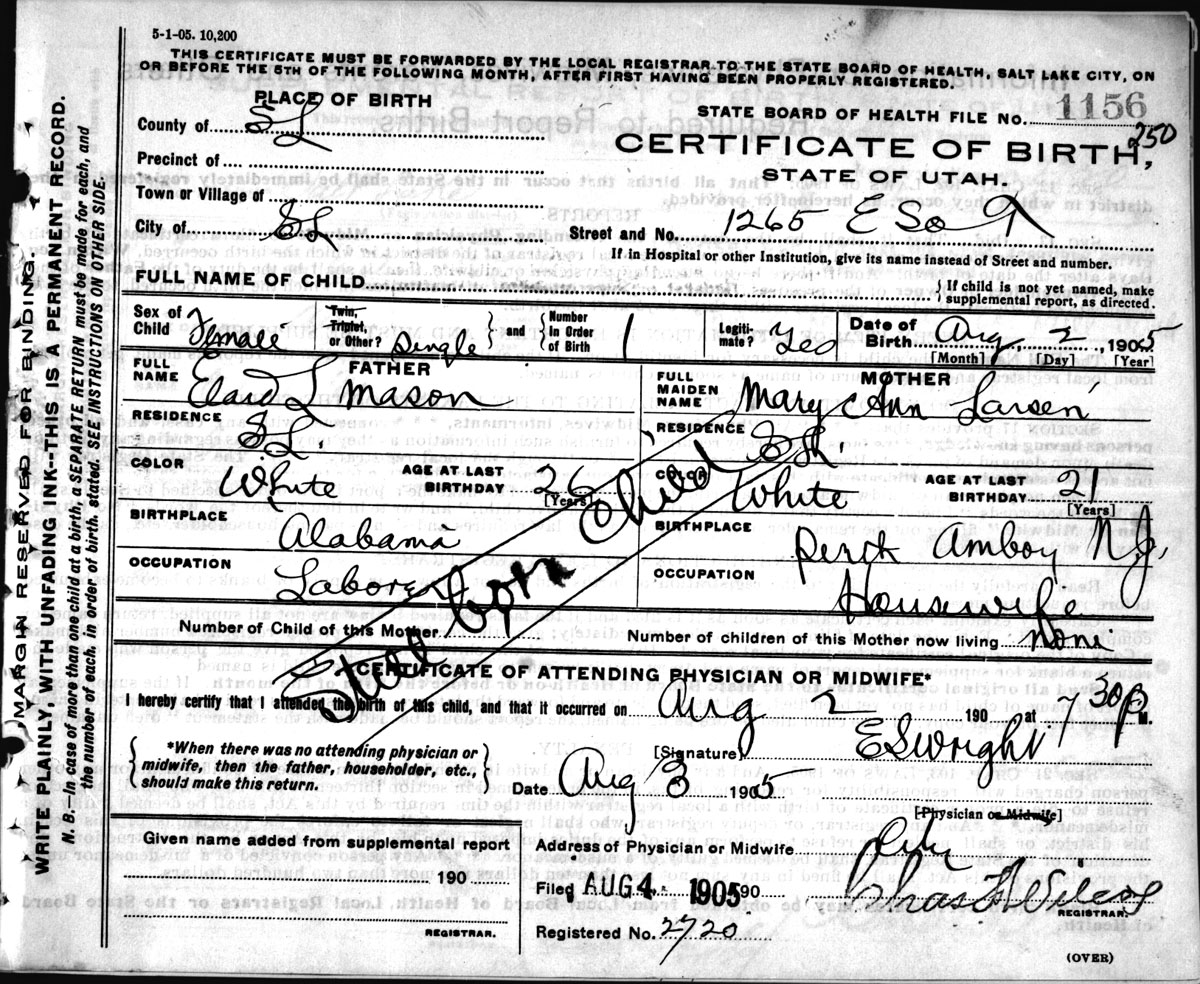 5-1-05. 10,200
THIS CERTIFICATE MUST BE FORWARDED BY THE LOCAL REGISTRAR TO THE STATE BOARD OF HEALTH, SALT LAKE CITY, ON
OR BEFORE THE 5TH OF THE FOLLOWING MONTH, AFTER FIRST HAVING BEEN PROPERLY REGISTERED.
PLACE OF BIRTH
STATE BOARD OF HEALTH FILE NO. 1156
250
County of S L
CERTIFICATE OF BIRTH,
Precinct of
STATE OF UTAH.
Town or Village of
City of S L
Street and No. 1265 E So
If in Hospital or other Institution, give its name instead of Street and number.
FULL NAME OF CHILD
{If child is not yet named, make
supplemental report, as directed.
Sex of Child Female
Twin, Triplet, or Other? Single
and {Number in Order of Birth 1
Legitimate? Yes
Date of Birth Aug 2, 1905
[Month] [Day] [Year]
FATHER
FULL NAME L Mason
RESIDENCE S L
COLOR White
AGE AT LAST BIRTHDAY 26 [Years]
BIRTHPLACE Alabama
OCCUPATION Laborer
MOTHER
FULL MAIDEN NAME Mary Ann Larsen
RESIDENCE S L
COLOR White
AGE AT LAST BIRTHDAY 21 [Years]
BIRTHPLACE Perth Amboy N J.
OCCUPATION Housewife
Still born Child
Number of Child of this Mother
Number of children of this Mother now living None
CERTIFICATE OF ATTENDING PHYSICIAN OR MIDWIFE*
I hereby certify that I attended the birth of this child, and that it occurred on Aug 2, 190 at 1 30 P M.
{*When there was no attending physician or
midwife, then the father, householder, etc.,
should make this return.}
[Signature] E S Wright
Date Aug 3 1905
[Physician or Midwife]
Given name added from supplemental report
190
REGISTRAR.
Address of Physician or Midwife City
Filed AUG 4 1905 190
Chas F Wilcox
REGISTRAR.
Registered No. 2720
(OVER)
MARGIN RESERVED FOR BINDING.
WRITE PLAINLY, WITH UNFADING INK--THIS IS A PERMANENT RECORD.
N. B.—In case of more than one child at a birth, a SEPARATE RETURN must be made for each, and
the number of each, in order of birth, stated. SEE INSTRUCTIONS ON OTHER SIDE.